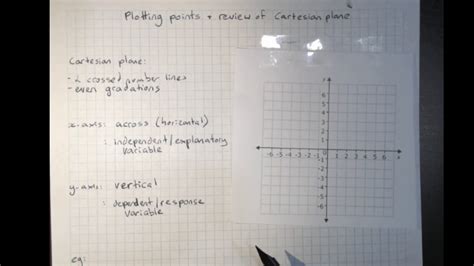 Plotting points + review of Cartesian plane
Cartesian plane:
- 2 crossed number lines
- even gradations
x-axis: across (horizontal)
: independent/explanatory
variable
y-axis: vertical
: dependent/response
variable
eg:
y
6
5
4
3
2
1
-6 -5 -4 -3 -2 -1 1 2 3 4 5 6 x
-1
-2
-3
-4
-5
-6